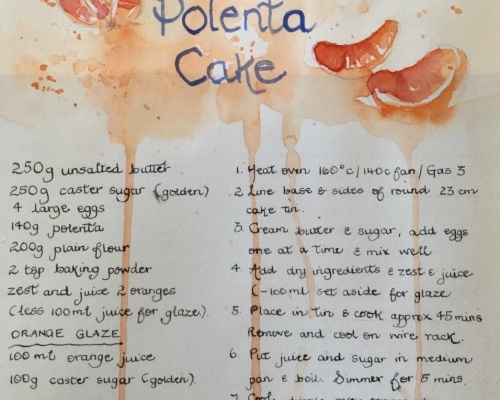 Polenta
Cake
250g unsalted butter
250g caster sugar (golden)
4 large eggs
140g polenta
200g plain flour
2 tsp baking powder
zest and juice 2 oranges
(less 100ml juice for glaze).
ORANGE GLAZE
100ml orange juice
100g caster sugar (golden).
1. Heat oven 160°c/140c fan/Gas 3
2. Line base & sides of round 23cm
cake tin.
3. Cream butter & sugar, add eggs
one at a time & mix well
4. Add dry ingredients & zest & juice
(-100ml set aside for glaze
5. Place in tin & cook approx 45mins
Remove and cool on wire rack.
6. Put juice and sugar in medium
pan & boil. Simmer for 5 mins.
7. Cool